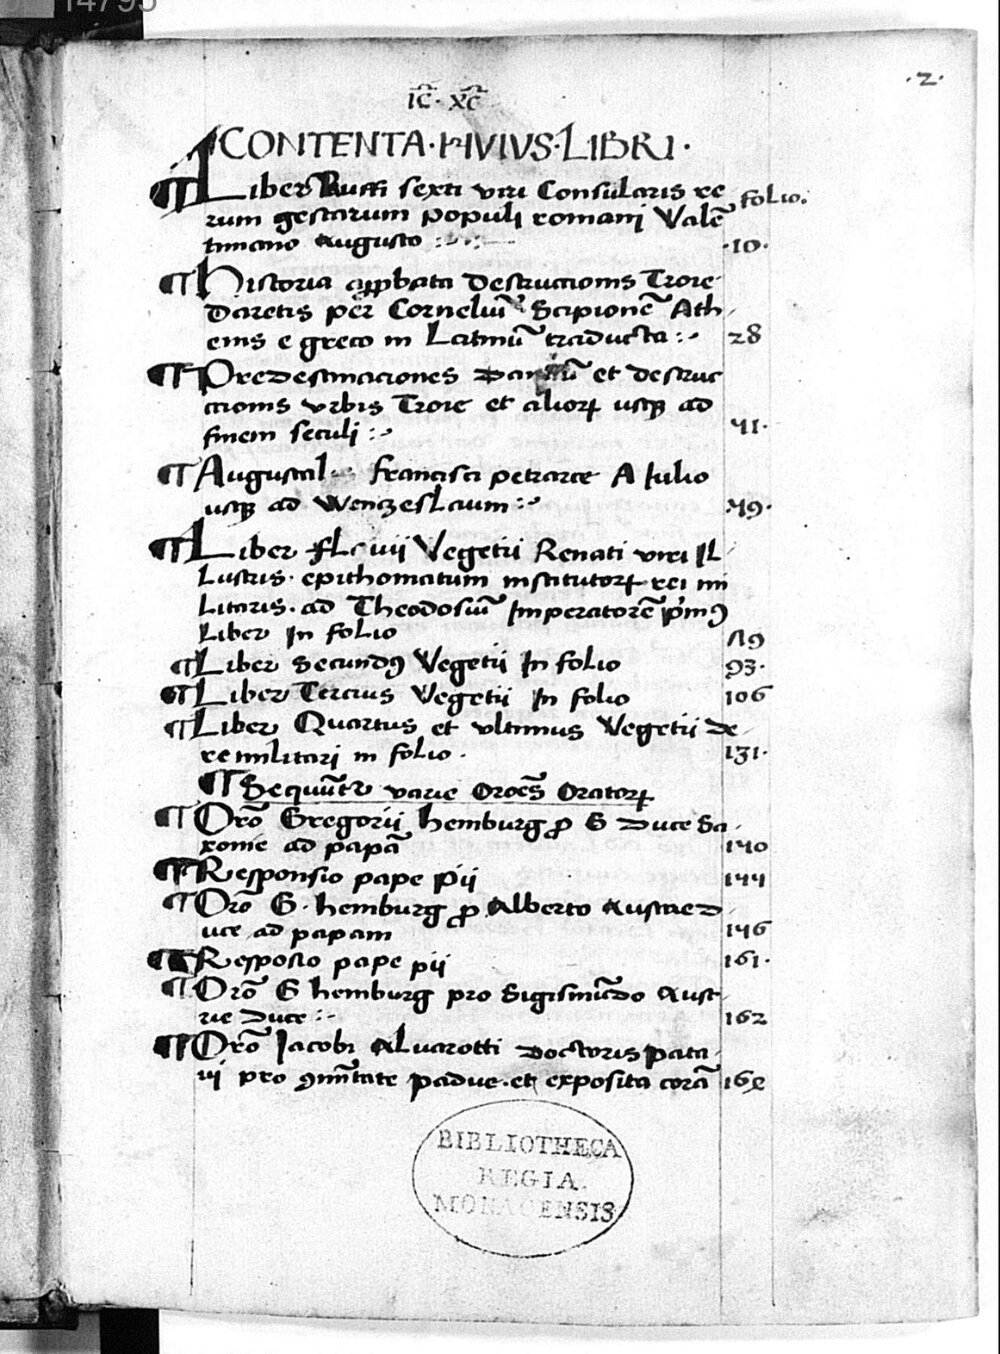 14795
.2.
IC̅. XC̅
CONTENTA · HVIVS · LIBRI ·
¶ Liber Ruffi sexti viri Consularis re
folio.
rum gestarum populi romani Valẽ
tiniano Augusto :
·10·
¶ Historia app̱bata Destructionis Troie
Daretis per Corneliũ Scipionẽ Ath
enis e greco in Latinũ traducta :
28
¶ Predestinaciones et destruc
cionis vrbis Troie et alioꝝ usqꝫ ad
finem seculi :
41·
¶ Augustal Francisci petrarce A Iulio
usqꝫ ad Wenczeslaum :
49·
¶ Liber Flavii Vegetii Renati viri Il
Lustris · epithomatum institutoꝝ rei mi
Litaris · ad Theodosiũ Imperatorẽ p̃mꝰ
Liber In foLio
79
¶ Liber Secundꝰ Vegetii In folio
93·
¶ Liber Tercius Vegetii In folio
106
¶ Liber Quartus et vltimus Vegetii de
re militari in folio ·
131·
¶ Sequũtr varie Oroẽs Oratoꝝ
¶ Oro̅ Gregorii hemburg ꝓ S Duce Sa
xonie ad papã
140
¶ Responsio pape Pii
144
¶ Oro̅ G · hemburg ꝓ Alberto Austrie D
uce ad papam
146
¶ Resposio pape pii
161·
¶ Oro̅ G hemburg pro Sigismũdo Aust
rie Duce :
162
¶ Oro̅ Jacobi Alvarotti Doctoris pata
vi pro ꝯmu̅tate padue · et exposita corã
168
BIBLIOTHECA
REGIA.
MONACENSIS